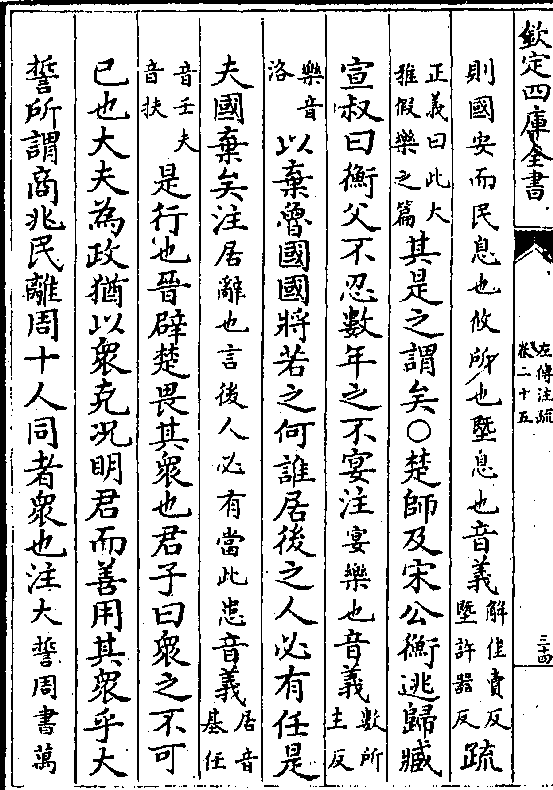 欽定四庫全書
左傳注疏
卷二十五
三十四
則國安而民息也攸所也墍息也音義解佳賣反墍許器反疏
正義曰此大雅假樂之篇其是之謂矣○楚師及宋公衡逃歸臧
宣叔曰衡父不忍數年之不宴注宴樂也音義數所主反
樂音洛以棄魯國國將若之何誰居後之人必有任是
夫國棄矣注居辭也言後人必有當此患音義居音基任
音壬夫音扶是行也晉辟楚畏其衆也君子曰衆之不可
已也大夫為政猶以衆克况明君而善用其衆乎大
誓所謂商兆民離周十人同者衆也注大誓周書萬